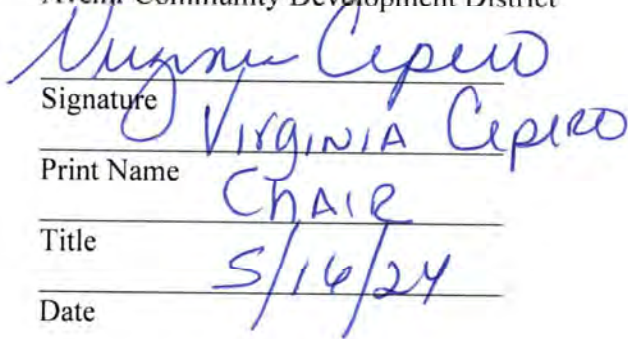 Community Development District
Virginia Cepero
Signature
Virginia Cepero
Print Name
Chair
Title
5/16/24
Date